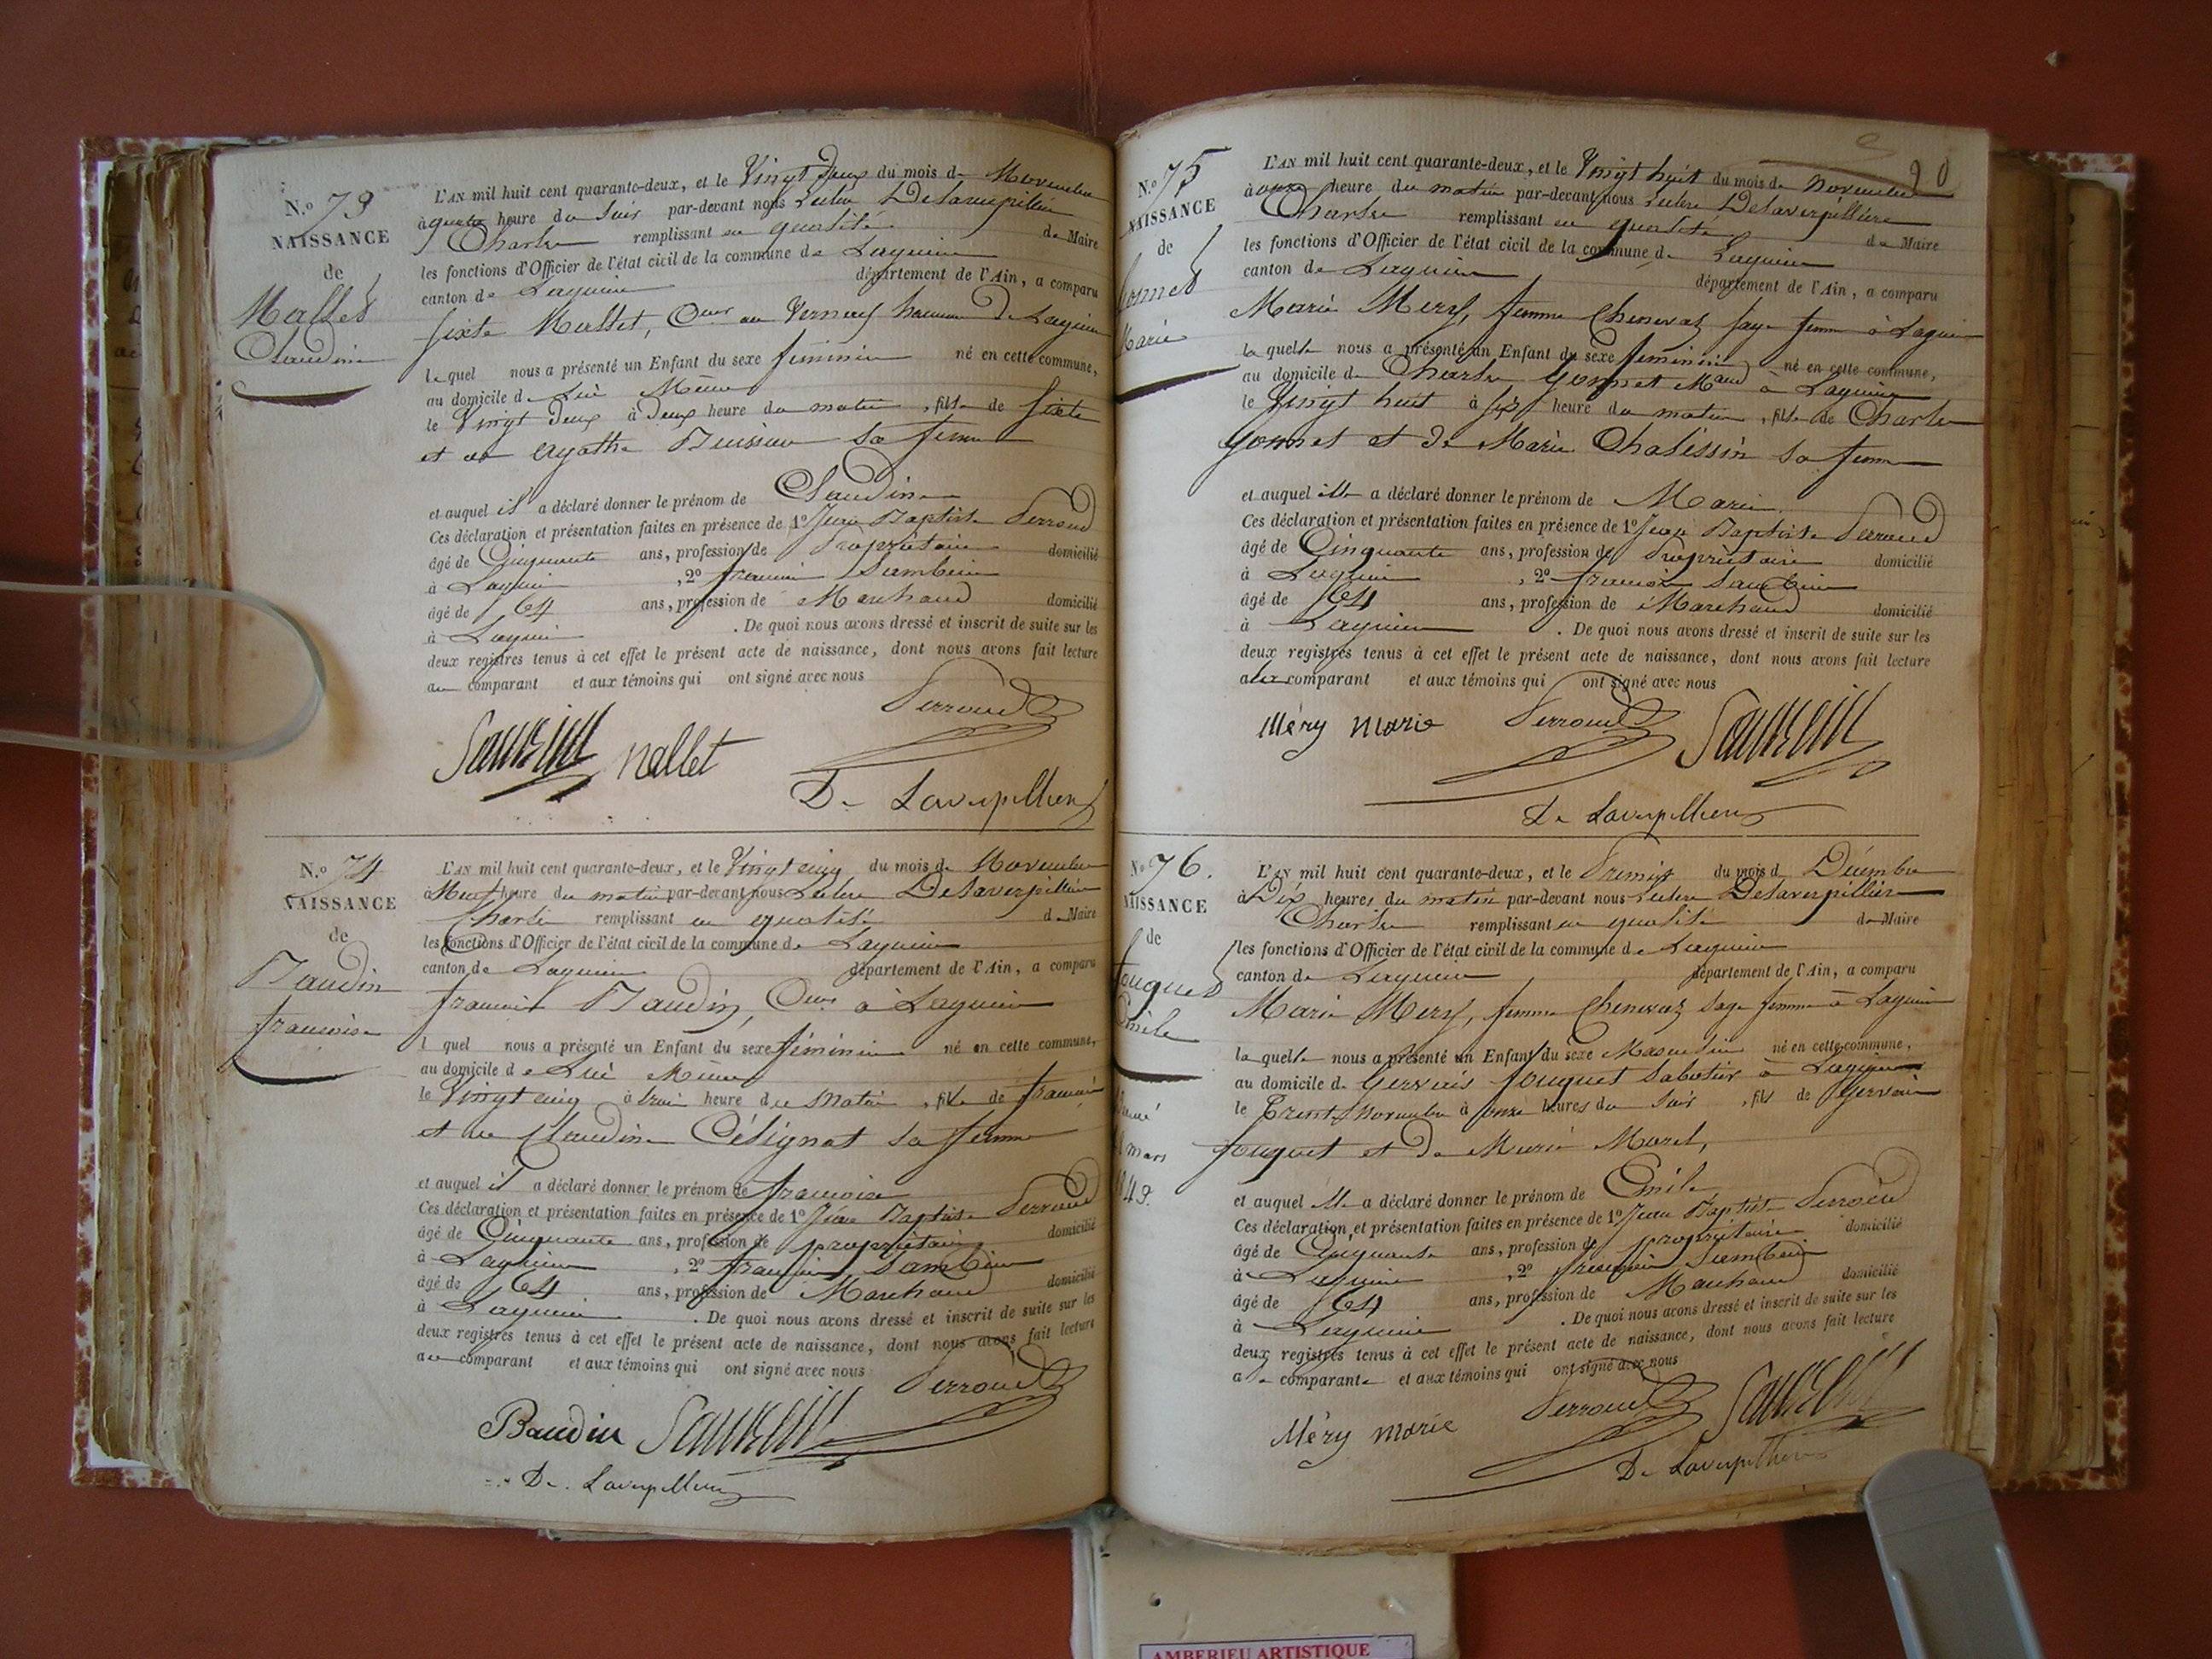 N.º 73
NAISSANCE
de
Mallet
Claudine
L'AN mil huit cent quarante-deux, et le Vingt deux du mois de Novembre
à quatre heure du Soir par-devant nous
Charles remplissant en qualité de Maire
les fonctions d'Officier de l'état civil de la commune de Lagnieu
canton de Lagnieu département de l'Ain, a comparu
Sixte Mallet, de Lagnieu
lequel nous a présenté un Enfant du sexe féminin né en cette commune,
au domicile de Lui Même
le Vingt deux à Deux heure du matin, fille de Sixte
et de Agathe Buisson sa femme
et auquel il a déclaré donner le prénom de Claudine
Ces déclaration et présentation faites en présence de 1º Jean Baptiste Perroud
âgé de Cinquante ans, profession de Propriétaire domicilié
à Lagnieu, 2º françois Sambuin
âgé de 64 ans, profession de Marchand domicilié
à Lagnieu. De quoi nous avons dressé et inscrit de suite sur les
deux registres tenus à cet effet le présent acte de naissance, dont nous avons fait lecture
au comparant et aux témoins qui ont signé avec nous
Perroud
mallet
De Laverpilliere
N.º 74
NAISSANCE
de
Baudin
françoise
L'AN mil huit cent quarante-deux, et le Vingt cinq du mois de Novembre
à Neuf heure du matin par-devant nous Delaverpilliere
Charles remplissant en qualité de Maire
les fonctions d'Officier de l'état civil de la commune de Lagnieu
canton de Lagnieu département de l'Ain, a comparu
françois Baudin, à Lagnieu
lequel nous a présenté un Enfant du sexe féminin né en cette commune,
au domicile de Lui Même
le Vingt cinq à trois heure du Matin, fille de françois
et de Claudine Célignat sa femme
et auquel il a déclaré donner le prénom de françoise
Ces déclaration et présentation faites en présence de 1º Jean Baptiste Perroud
âgé de Cinquante ans, profession de propriétaire domicilié
à Lagnieu, 2º françois Sambuin
âgé de 64 ans, profession de Marchand domicilié
à Lagnieu. De quoi nous avons dressé et inscrit de suite sur les
deux registres tenus à cet effet le présent acte de naissance, dont nous avons fait lecture
au comparant et aux témoins qui ont signé avec nous
Perroud
Baudin
De Laverpilliere
20
N.º 75
NAISSANCE
de
Gonnet
Marie
L'AN mil huit cent quarante-deux, et le Vingt huit du mois de novembre
à onze heure du matin par-devant nous Delaverpilliere
Charles remplissant en qualité de Maire
les fonctions d'Officier de l'état civil de la commune de Lagnieu
canton de Lagnieu département de l'Ain, a comparu
Marie Mery, femme Chenevaz sage femme à Lagnieu
laquelle nous a présenté un Enfant du sexe féminin né en cette commune,
au domicile de Charles Gonnet Mand à Lagnieu
le Vingt huit à six heure du matin, fille de Charles
Gonnet et de Marie Chalissin sa femme
et auquel elle a déclaré donner le prénom de Marie
Ces déclaration et présentation faites en présence de 1º Jean Baptiste Perroud
âgé de Cinquante ans, profession de Propriétaire domicilié
à Lagnieu, 2º françois Sambuin
âgé de 64 ans, profession de Marchand domicilié
à Lagnieu. De quoi nous avons dressé et inscrit de suite sur les
deux registres tenus à cet effet le présent acte de naissance, dont nous avons fait lecture
comparant et aux témoins qui ont signé avec nous
Méry marie Perroud
De Laverpilliere
N.º 76.
NAISSANCE
de
fouquet
Emile
mars
L'AN mil huit cent quarante-deux, et le Premier du mois d Décembre
à Dix heures du matin par-devant nous Delaverpilliere
Charles remplissant en qualité de Maire
les fonctions d'Officier de l'état civil de la commune de Lagnieu
canton de Lagnieu département de l'Ain, a comparu
Marie Mery, femme Chenevaz Sage femme à Lagnieu
laquelle nous a présenté un Enfant du sexe Masculin né en cette commune,
au domicile de Gervais fouquet Sabotier à Lagnieu
le Trente Novembre à onze heures du Soir, fils de Gervais
fouquet et de Marie Morel,
et auquel elle a déclaré donner le prénom de Emile
Ces déclaration et présentation faites en présence de 1º Jean Baptiste Perroud
âgé de Cinquante ans, profession de propriétaire domicilié
à Lagnieu, 2º françois Sambuin
âgé de 64 ans, profession de Marchand domicilié
à Lagnieu. De quoi nous avons dressé et inscrit de suite sur les
deux registres tenus à cet effet le présent acte de naissance, dont nous avons fait lecture
a la comparante et aux témoins qui ont signé avec nous
Méry marie Perroud
De Laverpilliere
AMBERIEU ARTISTIQUE